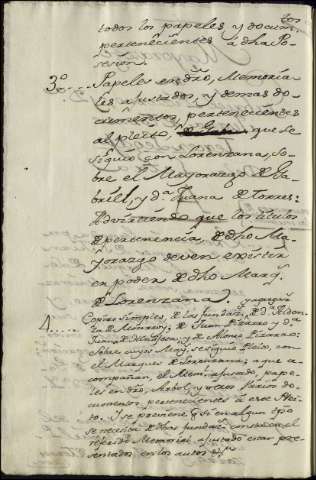 todos los papeles y docum.tos
pertenecientes à dha Po-
sesion.
3º.... Papeles en dro, Memoria-
les ajustados, y demas do-
cumentos pertenecientes
al pleito, que se
siguió con Lorenzana, so-
bre el Mayorazgo de Ga-
briel, y Dª Juana de Torres:
Advirtiendo que los titulos
de pertenencia, de dho Ma-
yorazgo deven existir
en poder del dho Marq.s
de Lorenzana.
4.... Copias simples, de las fundac.s de Dª
de Monroy, de Juan Pizarro y Dª
Juana de y de Alonso Pizarro:
sobre cuyos May.s se siguió Pleito, con
el Marques de Lorenzana; a que a-
compañan, el Mem.l ajustado, pape-
les en dro, Arbol, y otros varios do-
cumentos pertenecientes à este Plei-
to. Y se previene q.e si en algun tpo
se necesita de dhas fundac.s
referido Memorial ajustado estan pre-
sentadas en los autos